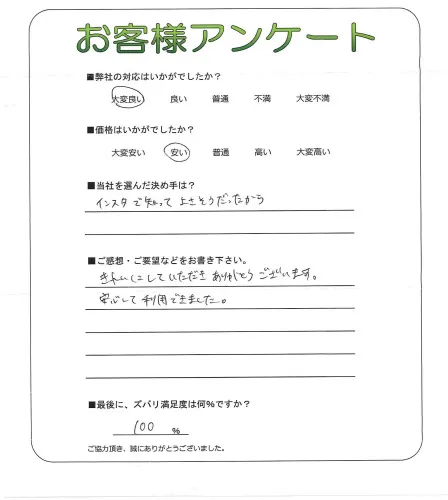 お客様アンケート
■弊社の対応はいかがでしたか?
大変良い 良い 普通 不満 大変不満
■価格はいかがでしたか?
大変安い 安い 普通 高い 大変高い
■当社を選んだ決め手は?
インスタで知って よさそうだったから
■ご感想・ご要望などをお書き下さい。
きれいにしていただき ありがとうございます。
安心して利用できました。
■最後に、ズバリ満足度は何%ですか?
100 %
ご協力頂き、誠にありがとうございました。